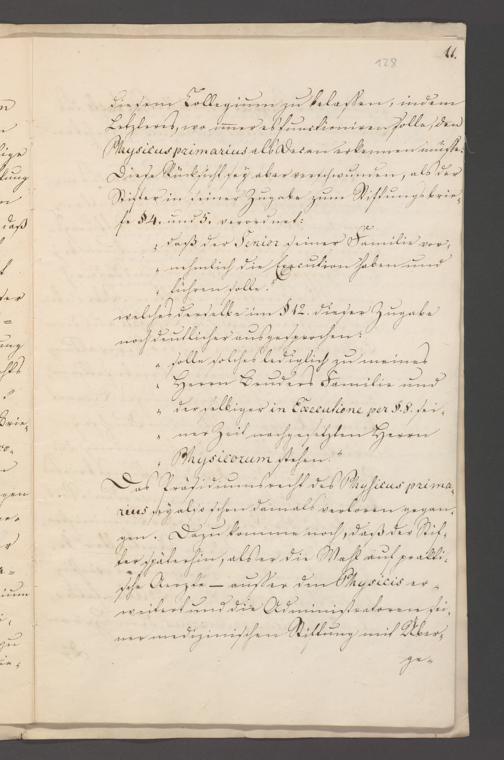 128
11.
diesem Collegium zu belassen, indem
Letzterer, wo immer es functioniren solle, den
Physicus primarius als Decan erkennen müsse.
Diese Rücksicht sey aber verschwunden, als der
Stifter in seiner Zugabe zum Stiftungsbrie-
fe §4. und 5. verordnet:
„ daß der Senior seiner Familie vor-
„ nehmlich die Execution haben und
„ führen solle.“
welches derselbe im §12. dieser Zugabe
noch deutlicher ausgesprochen:
„ solle solches lediglich zu meines
„ Herrn Bruders Familie und
„ derselbiger in Executione per §.8. sei-
„ ner Zeit nachgesetzten Herrn
„ Physicorum stehen.“
Das Präsidiumsrecht des Physicus prima-
rius sey also schon damals verloren gegan-
gen. Dazu komme noch, daß der Stif-
ter späterhin, als er die Wahl auf prakti-
sche Aerzte — ausser den Physicis er-
weitert und die Administratoren sei-
ner medizinischen Stiftung mit Über-
ge-